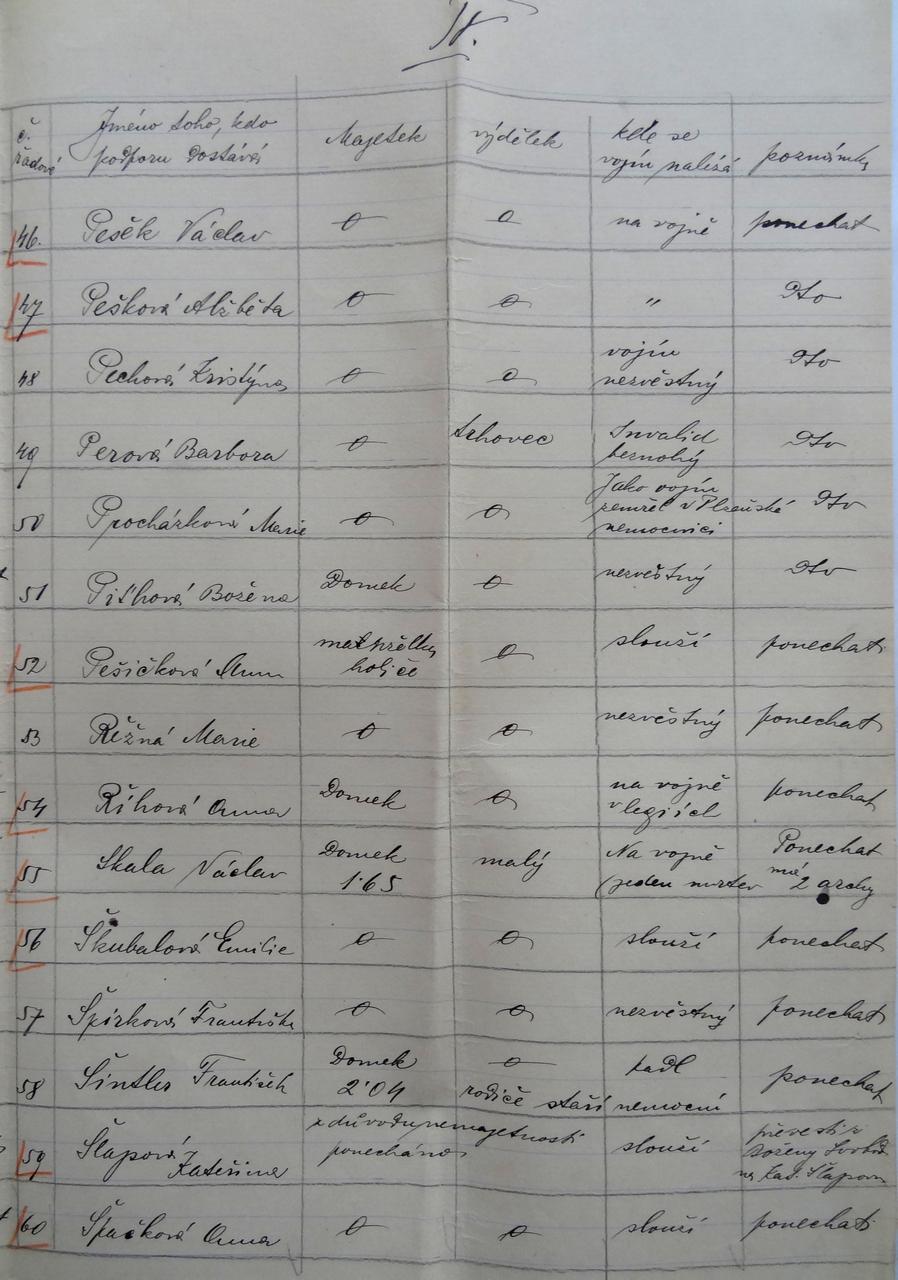 IV.
č. řadové Jméno toho, kdo podporu dostává Majetek výdělek kde se vojín nalézá poznámky
46. Pešěk Václav 0 0 na vojně ponechat
47 Pešková Alžběta 0 0 " Dto
48 Pechová Kristýna 0 0 vojín nezvěstný Dto
49 Perová Barbora 0 trhovec Invalid beznohý Dto
50 Procházková Marie 0 0 Jako vojín zemřel v Plzeňské nemocnici Dto
51 Píchová Božena Domek 0 nezvěstný Dto
52 Pešičková holiče 0 slouží ponechat
53 Řěžná Marie 0 0 nezvěstný ponechat
54 Říhová Anna Domek 0 na vojně v legiích ponechat
55 Skala Václav Domek 1·65 malý Na vojně (jeden mrtev Ponechat má 2 archy
56 Škubalová Emilie 0 0 slouží ponechat
57 Špírková Františka 0 0 nezvěstný ponechat
58 Šintler František Domek 2·04 0 rodiče staří nemocní padl ponechat
59 Šlapová Kateřina z důvodu nemajetnosti ponecháno slouží převesti z Boženy na Kat. Šlapovu
60 Špačková Anna 0 0 slouží ponechat